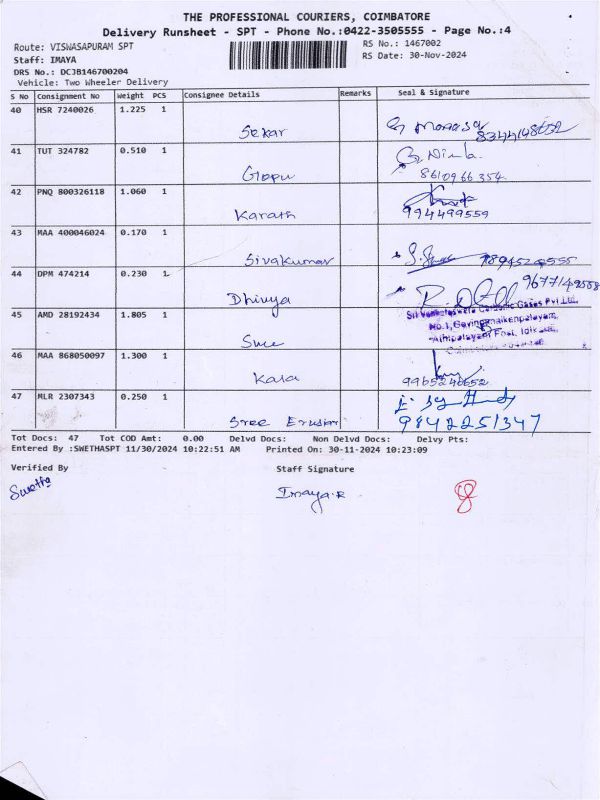 THE PROFESSIONAL COURIERS, COIMBATORE
Delivery Runsheet - SPT - Phone No.:0422-3505555 - Page No.:4
Route: VISWASAPURAM SPT
RS No.: 1467002
Staff: IMAYA
RS Date: 30-Nov-2024
DRS No.: DCJB146700204
Vehicle: Two Wheeler Delivery
S No Consignment No Weight PCS Consignee Details Remarks Seal & Signature
40 HSR 7240026 1.225 1
Sekar
41 TUT 324782 0.510 1
Gopu 8610966354
42 PNQ 800326118 1.060 1
Karath 994499559
43 MAA 400046024 0.170 1
Sivakumar
44 DPM 474214 0.230 1
Dhivya
45 AMD 28192434 1.805 1
Sree
46 MAA 868050097 1.300 1
Kala 9965240652
47 MLR 2307343 0.250 1
Sree 9842251347
Tot Docs: 47 Tot COD Amt: 0.00 Delvd Docs: Non Delvd Docs: Delvy Pts:
Entered By :SWETHASPT 11/30/2024 10:22:51 AM Printed On: 30-11-2024 10:23:09
Verified By Staff Signature
Swetha Imaya.R